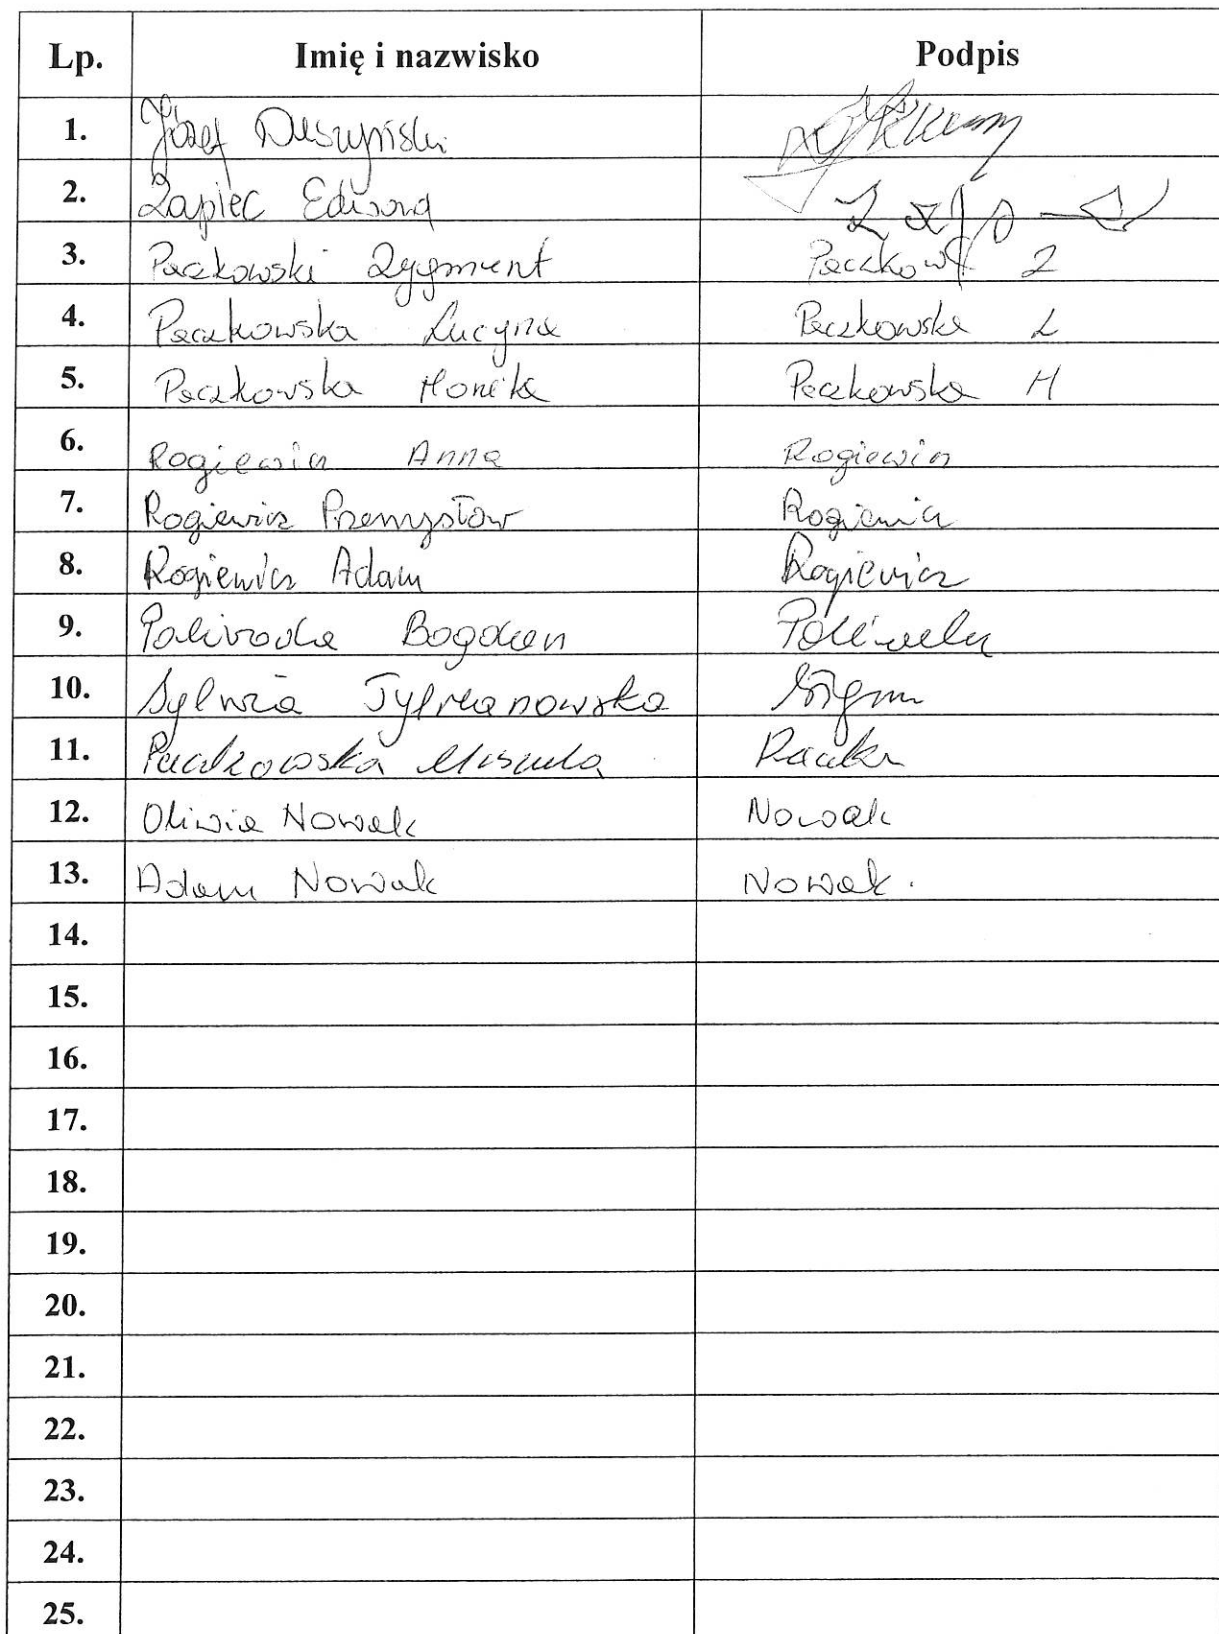 Lp. Imię i nazwisko Podpis
1. Józef Duszyński
2. Zapiec Edward
3. Paczkowski Zygmunt Paczkow Z
4. Paczkowska Lucyna Paczkowska L
5. Paczkowska Monika Paczkowska M
6. Rogiewicz Anna Rogiewicz
7. Rogiewicz Przemysław Rogiewicz
8. Rogiewicz Adam Rogiewicz
9. Poliwoda Bogdan
10. Sylwia Tylmanowska
11. Paczkowska Urszula
12. Oliwia Nowak Nowak
13. Adam Nowak Nowak.
14.
15.
16.
17.
18.
19.
20.
21.
22.
23.
24.
25.